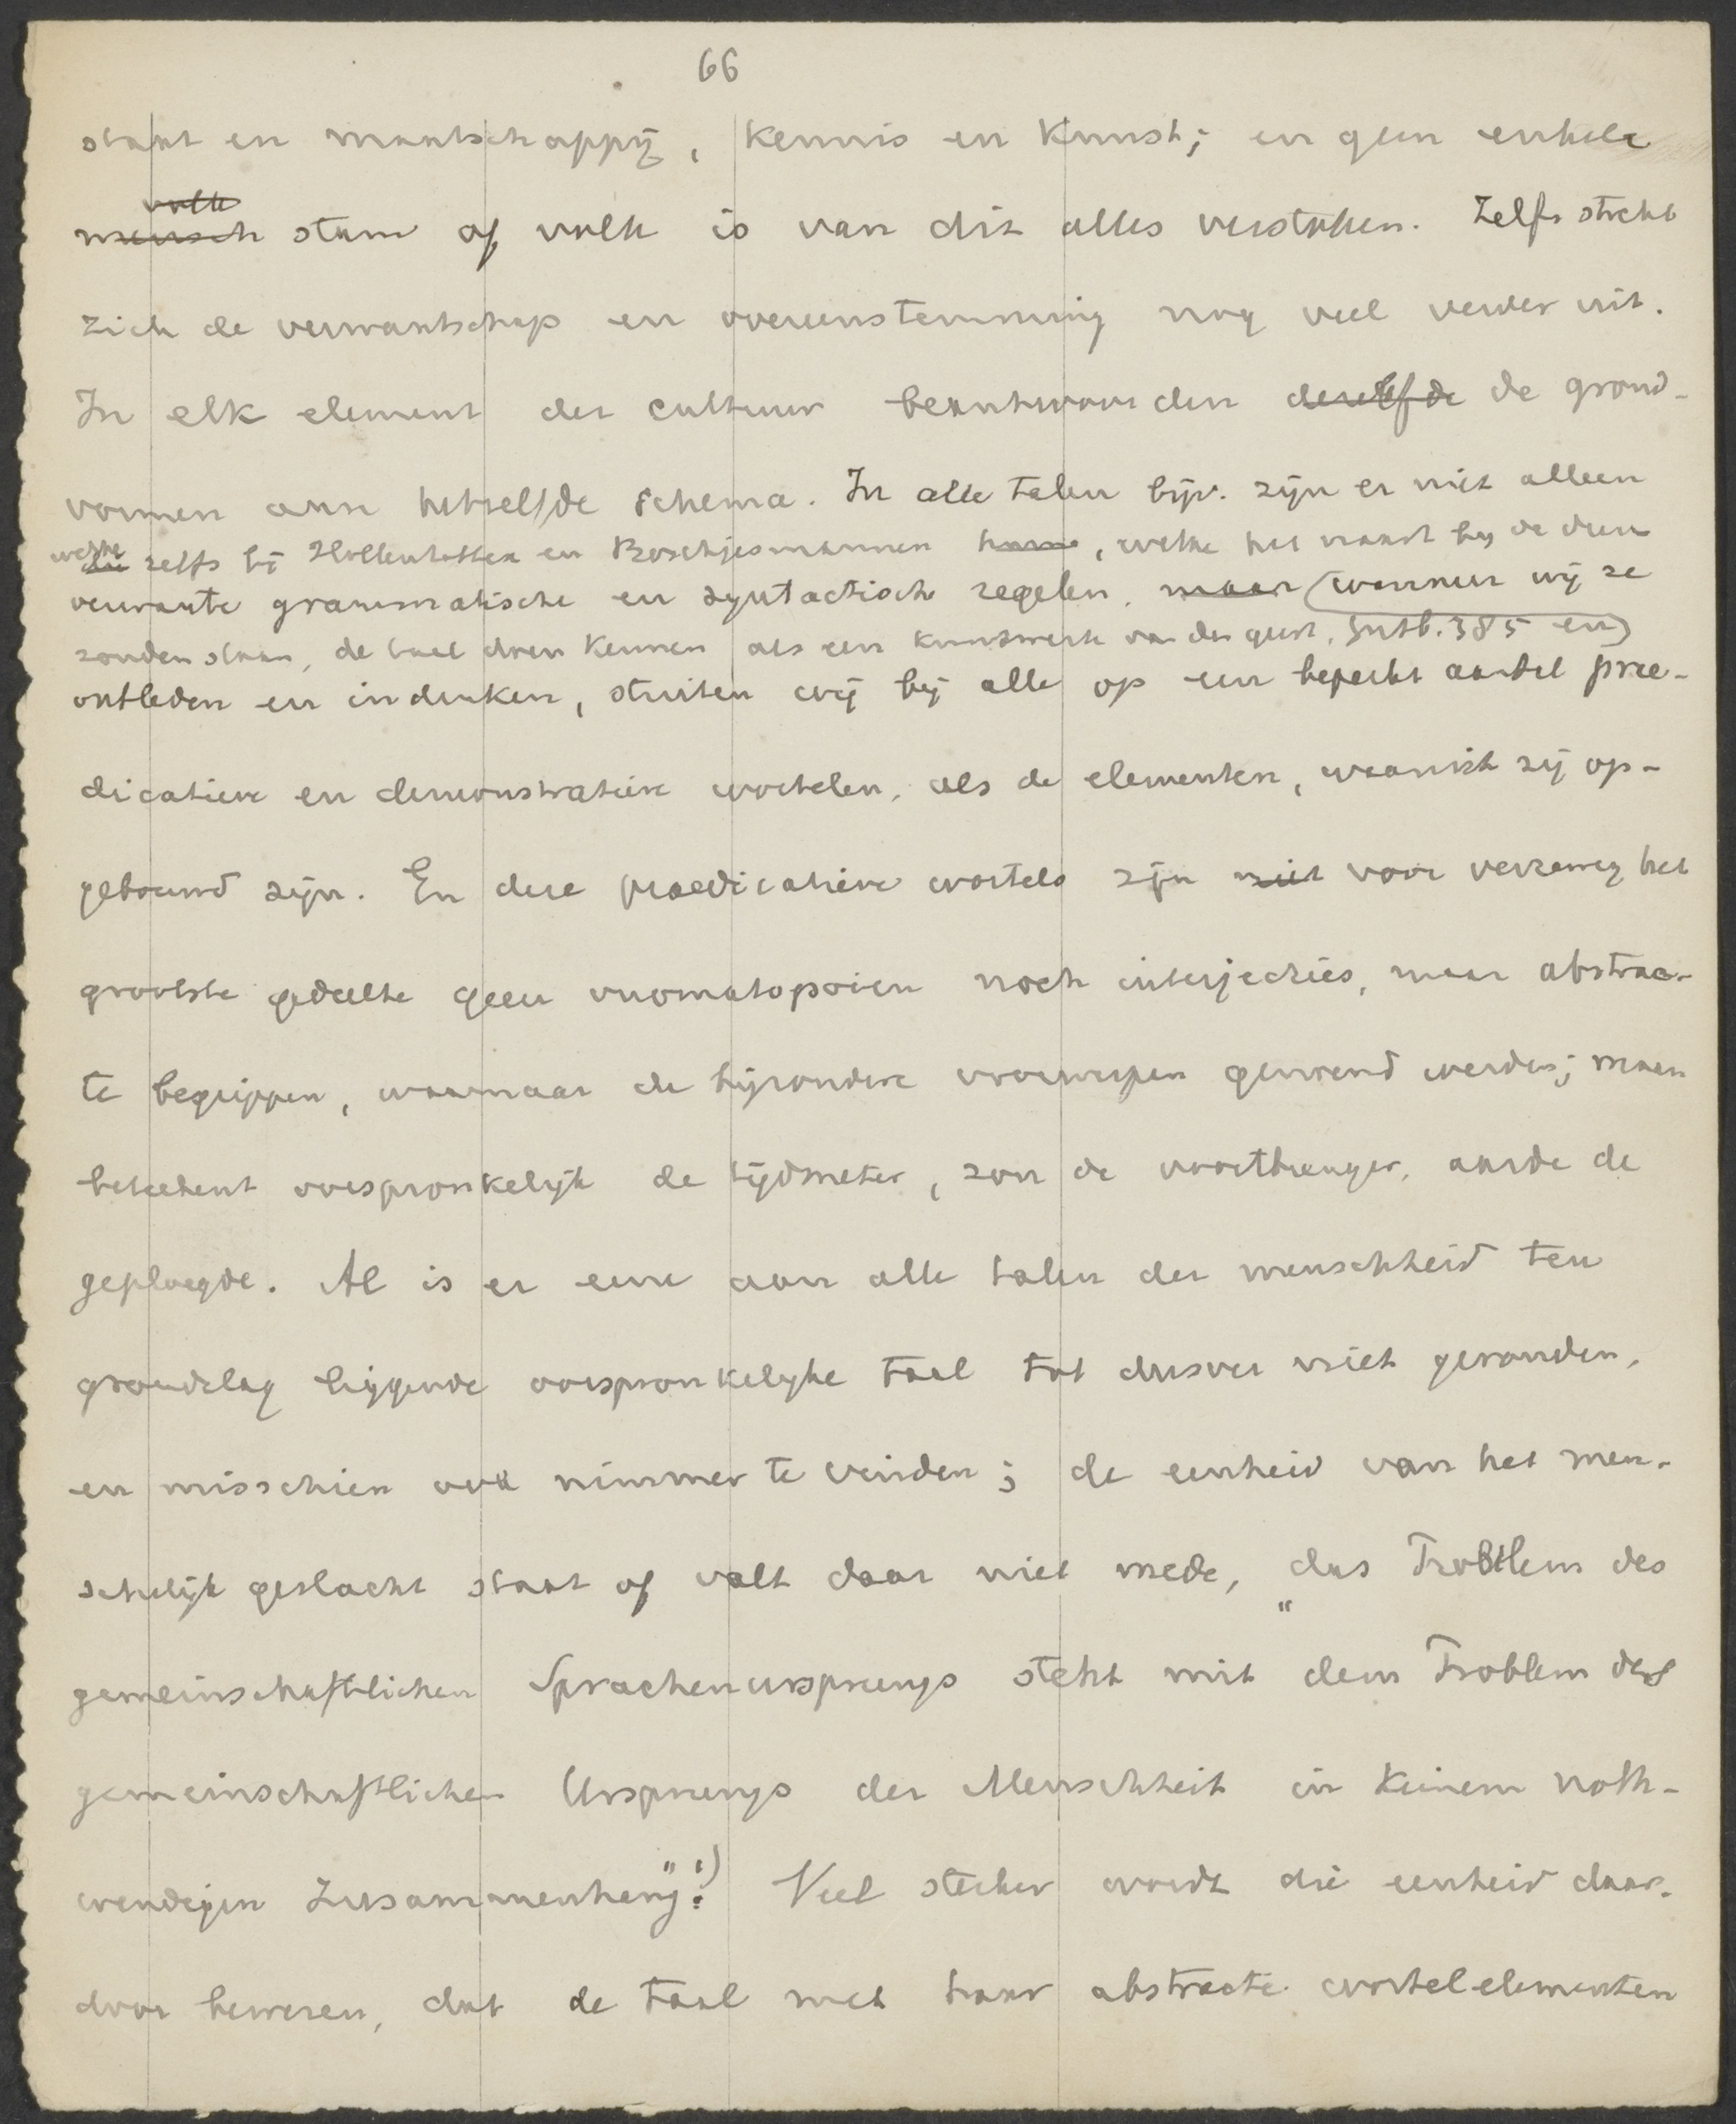 66
staat en maatschappij, kennis en kunst; en geen enkele
volk
mensch stam of volk is van dit alles verstoken. Zelfs strekt
zich de verwantschap en overeenstemming nog veel verder uit.
In elk element der cultuur beantwoorden dezelfde de grond-
vormen aan hetzelfde schema. In alle talen bijv. zijn er niet alleen
welke zelfs bij Hottentotten en Boschjesmannen , welke het naast bij de dieren
verwante grammatische en syntactische regelen, maar (wanneer wij ze
zouden staan, de taal doen kennen als een kunstwerk van den geest. Gutb. 385 en)
ontleden en indenken, stuiten wij bij alle op een beperkt aantal prae-
dicatieve en demonstratieve wortelen, als de elementen, waaruit zij op-
gebouwd zijn. En deze praedicatieve wortels zijn niet voor verreweg het
grootste gedeelte geen onomatopoieën noch interjecties, maar abstrac-
te begrippen, waarnaar de bijzondere voorwerpen genoemd werden; maan
beteekent oorspronkelijk de tijdmeter, zon de voortbrenger, aarde de
geploegde. Al is er eene aan alle talen der menschheid ten
grondslag liggende oorspronkelyke taal tot dusver niet gevonden,
en misschien ook nimmer te vinden; de eenheid van het men-
schelijk geslacht staat of valt daar niet mede, „das Problem des
gemeinschaftlichen Sprachenursprungs steht mit dem Problem des
gemeinschaftlichen Ursprungs der Menschheit in keinem noth-
wendigen Zusammenhang".¹) Veel sterker wordt die eenheid daar-
door bewezen, dat de taal met haar abstracte wortelelementen